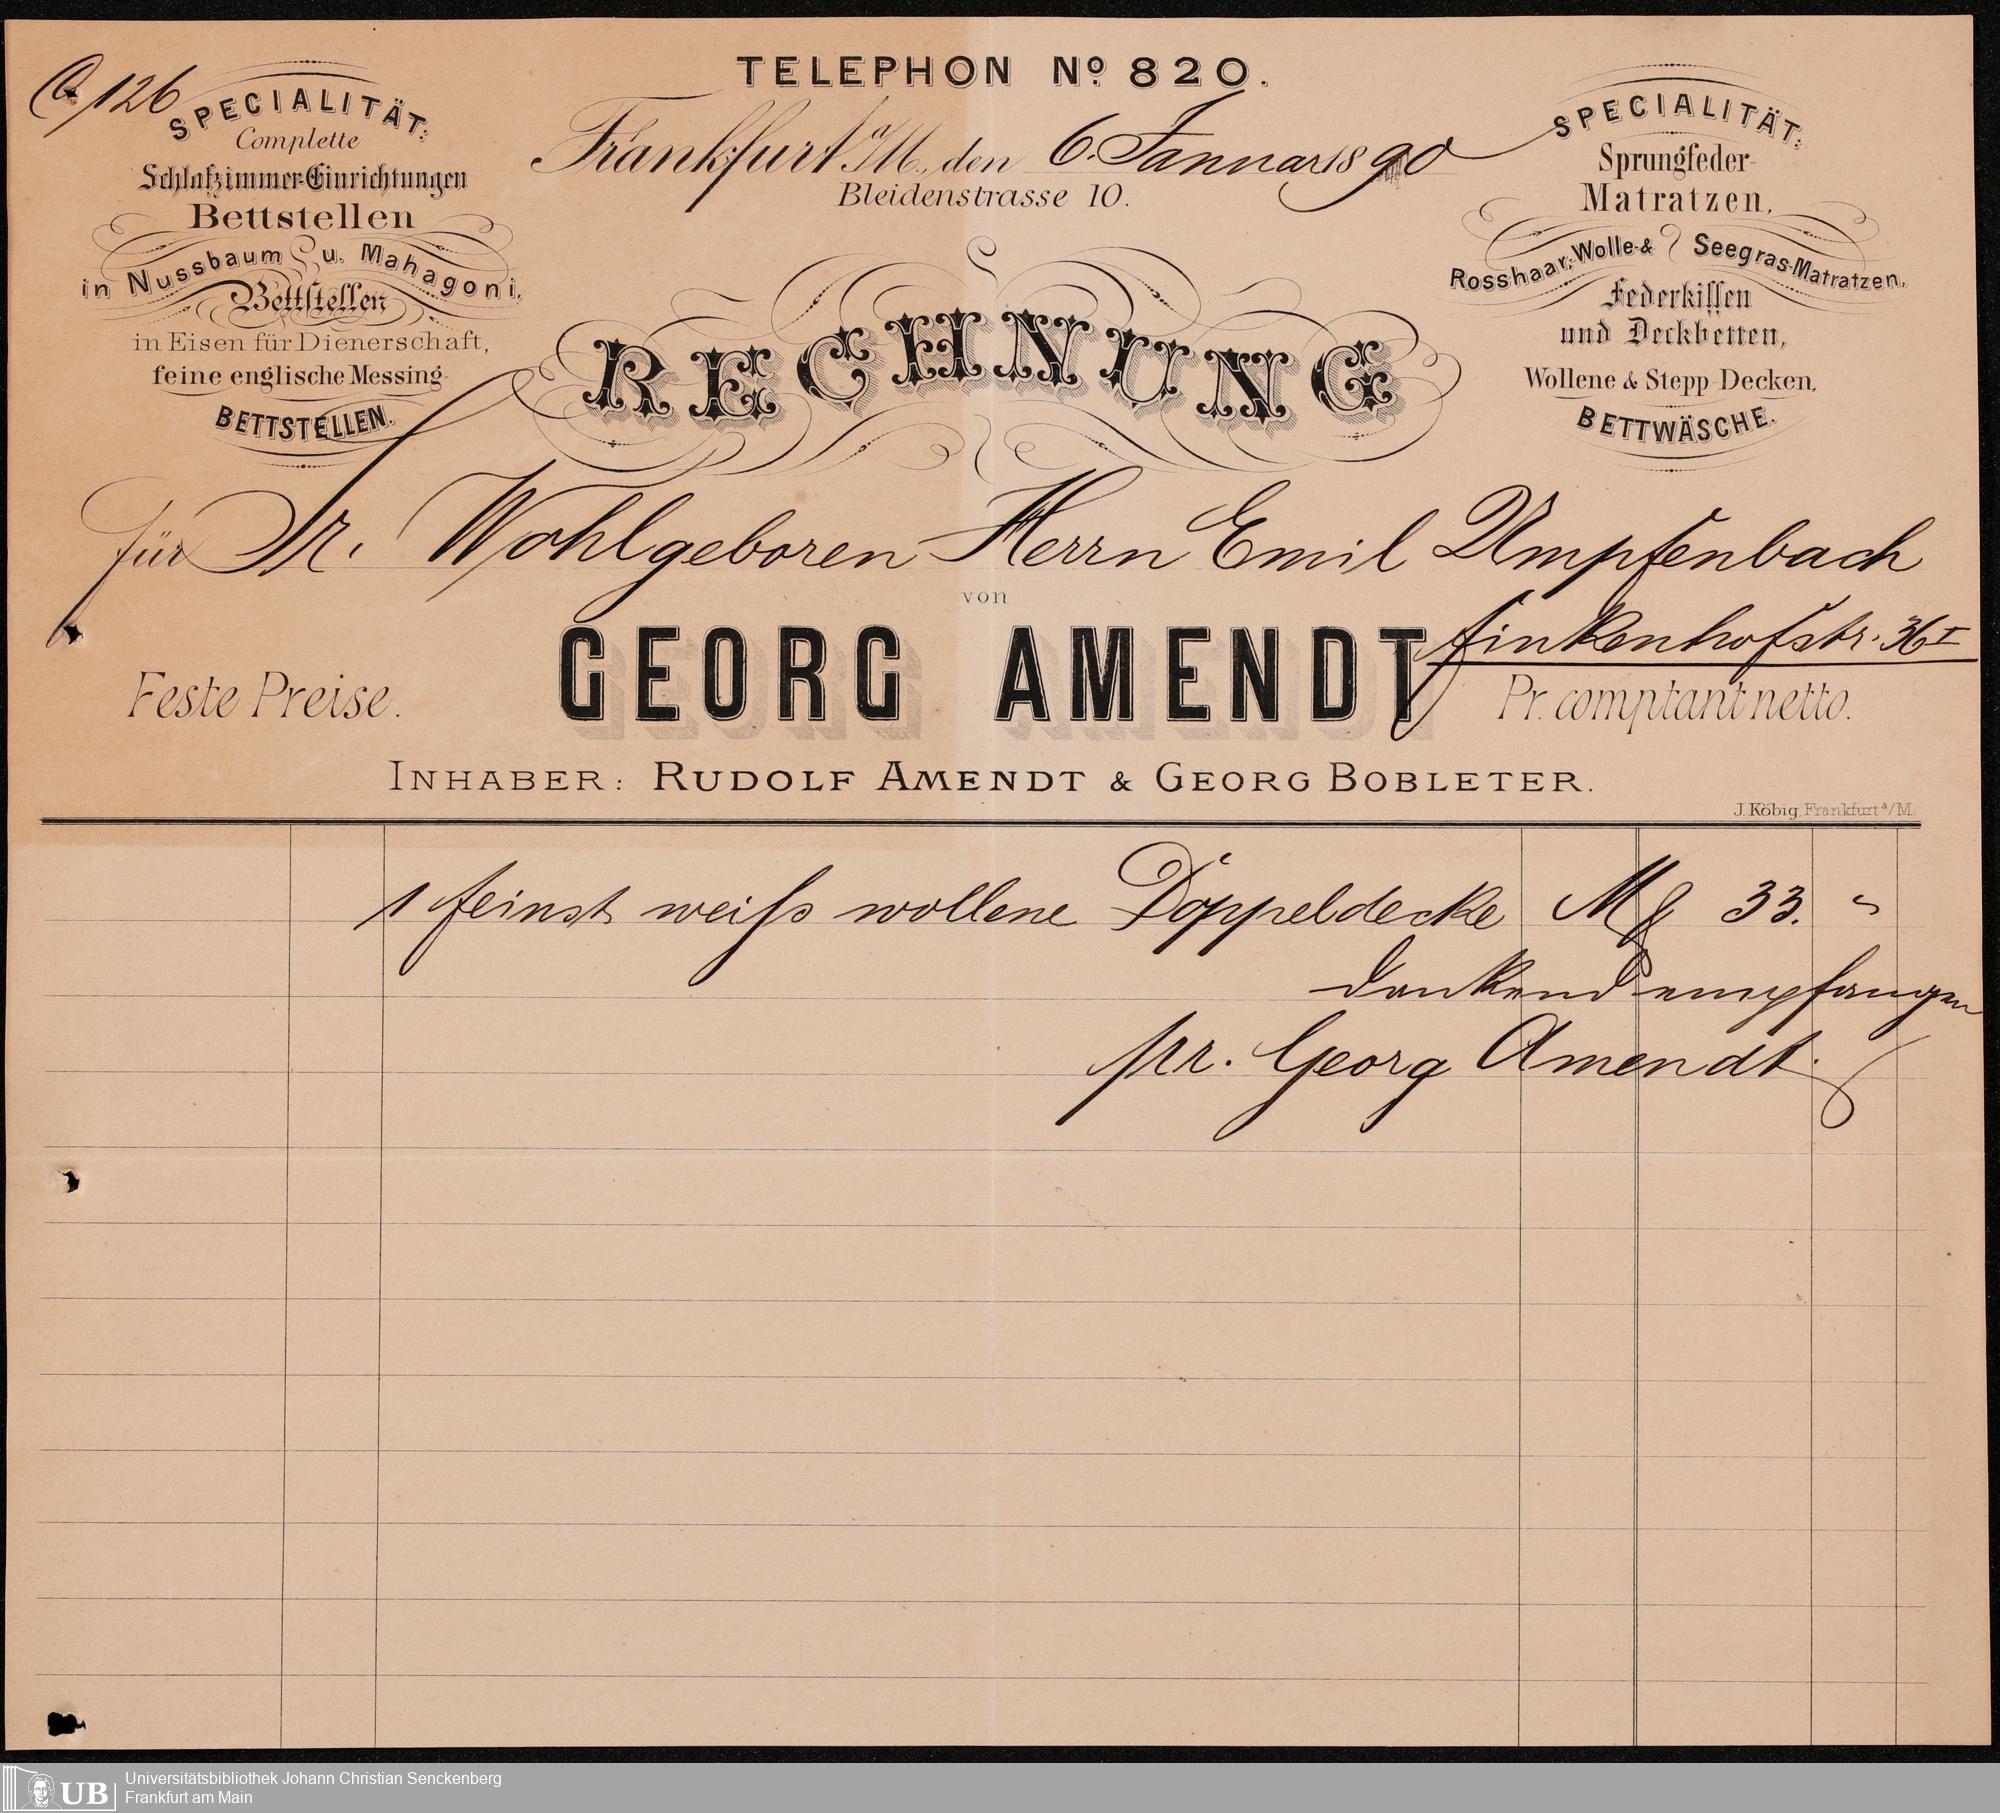 126
TELEPHON No 820.
Frankfurt a/M., den 6. Januar 1890
Bleidenstrasse 10.
SPECIALITÄT:
Complette
Schlafzimmer-Einrichtungen
Bettstellen
in Nussbaum u. Mahagoni,
Bettstellen
in Eisen für Dienerschaft,
feine englische Messing-
BETTSTELLEN.
SPECIALITÄT:
Sprungfeder-
Matratzen,
Rosshaar-, Wolle- & Seegras-Matratzen,
Federkissen
und Deckbetten,
Wollene & Stepp-Decken,
BETTWÄSCHE.
RECHNUNG
für Sr. Wohlgeboren Herrn Emil Umpfenbach
von
Finkenhofstr. 36 I
GEORG AMENDT
Feste Preise.
Pr. comptant netto.
INHABER: RUDOLF AMENDT & GEORG BOBLETER.
J. Köbig, Frankfurt a/M.
1 feinst weiss wollene Doppeldecke M 33. "
dankend empfangen
pr. Georg Amendt.
UB
Universitätsbibliothek Johann Christian Senckenberg
Frankfurt am Main